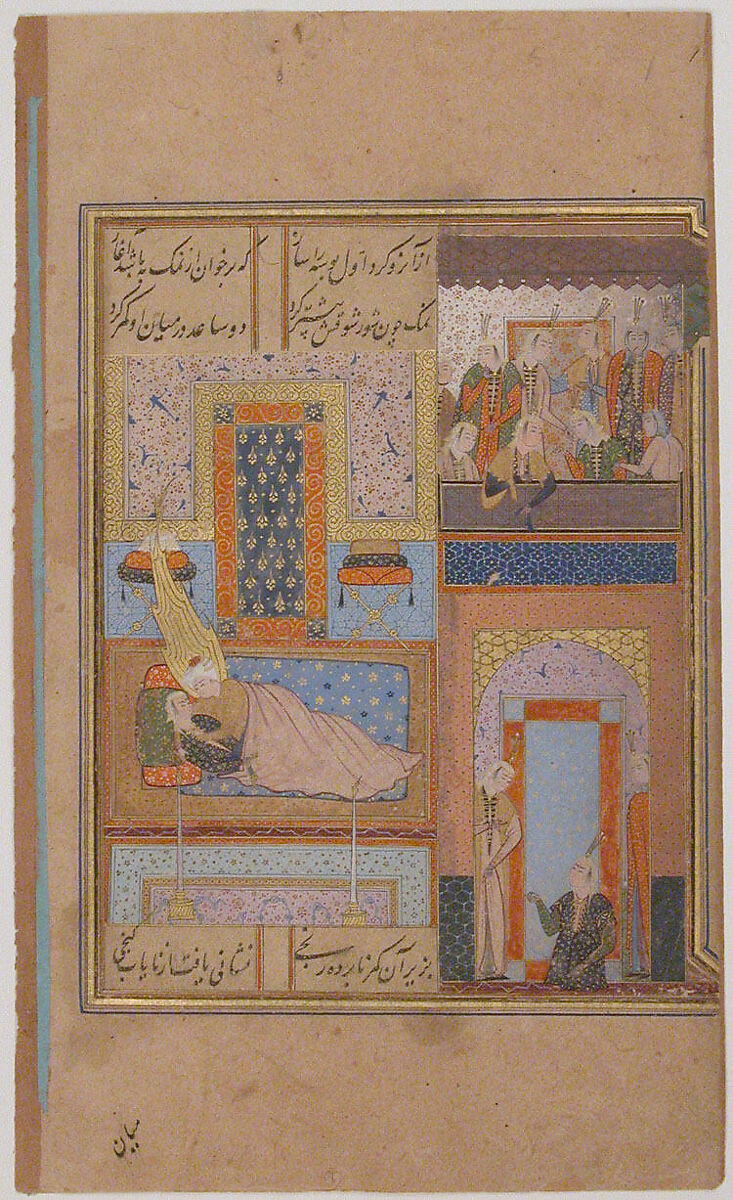 از آنرو کرد اول بوسه را ساز که بر خوان از نمک به باشد آغاز
نمک چون شور شوقش بیشتر کرد دو ساعد در میان او کمر کرد
بزیر آن کمر نابرده رنجی نشانی یافت از نایاب گنجی
میان